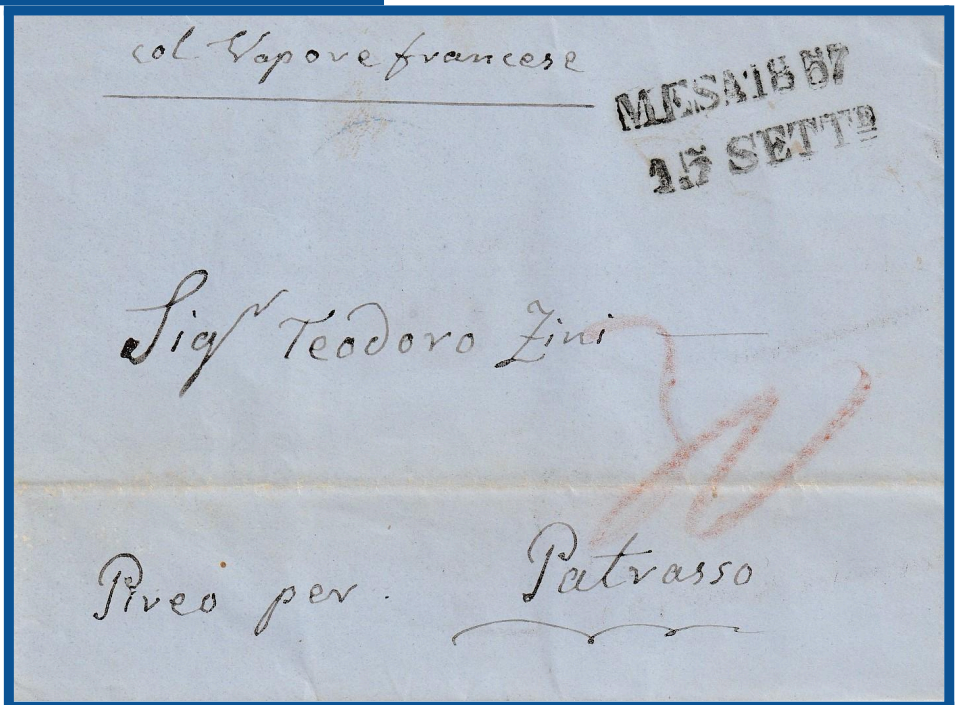 col Vapore francese
MESSA 1857
15 SETTᴱ
Sigʳ Teodoro Zini
Pireo per Patrasso